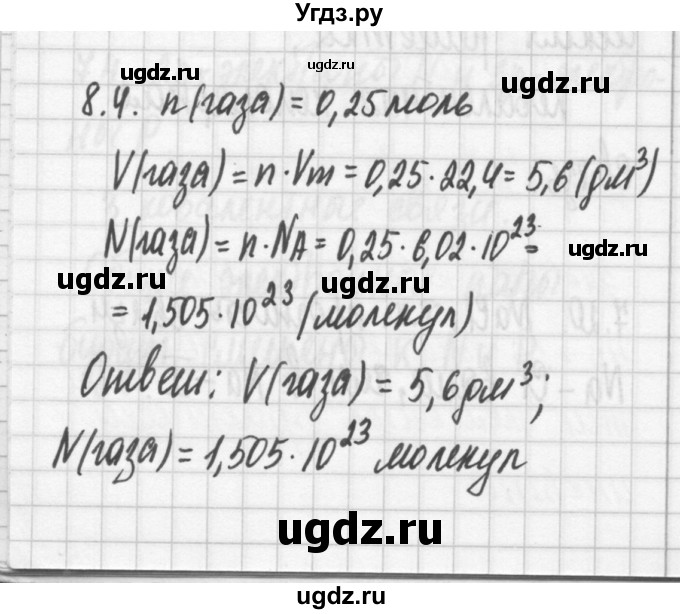 Угдз.ру
ugdz.ru ugdz.ru ugdz.ru
8.4. n(газа) = 0,25 моль
V(газа) = n·Vm = 0,25·22,4 = 5,6 (дм³)
N(газа) = n·NA = 0,25·6,02·10²³ = ugdz.ru
ugdz.ru ugdz.ru
= 1,505·10²³ (молекул)
Ответ: V(газа) = 5,6 дм³;
N(газа) = 1,505·10²³ молекул
ugdz.ru
ugdz.ru